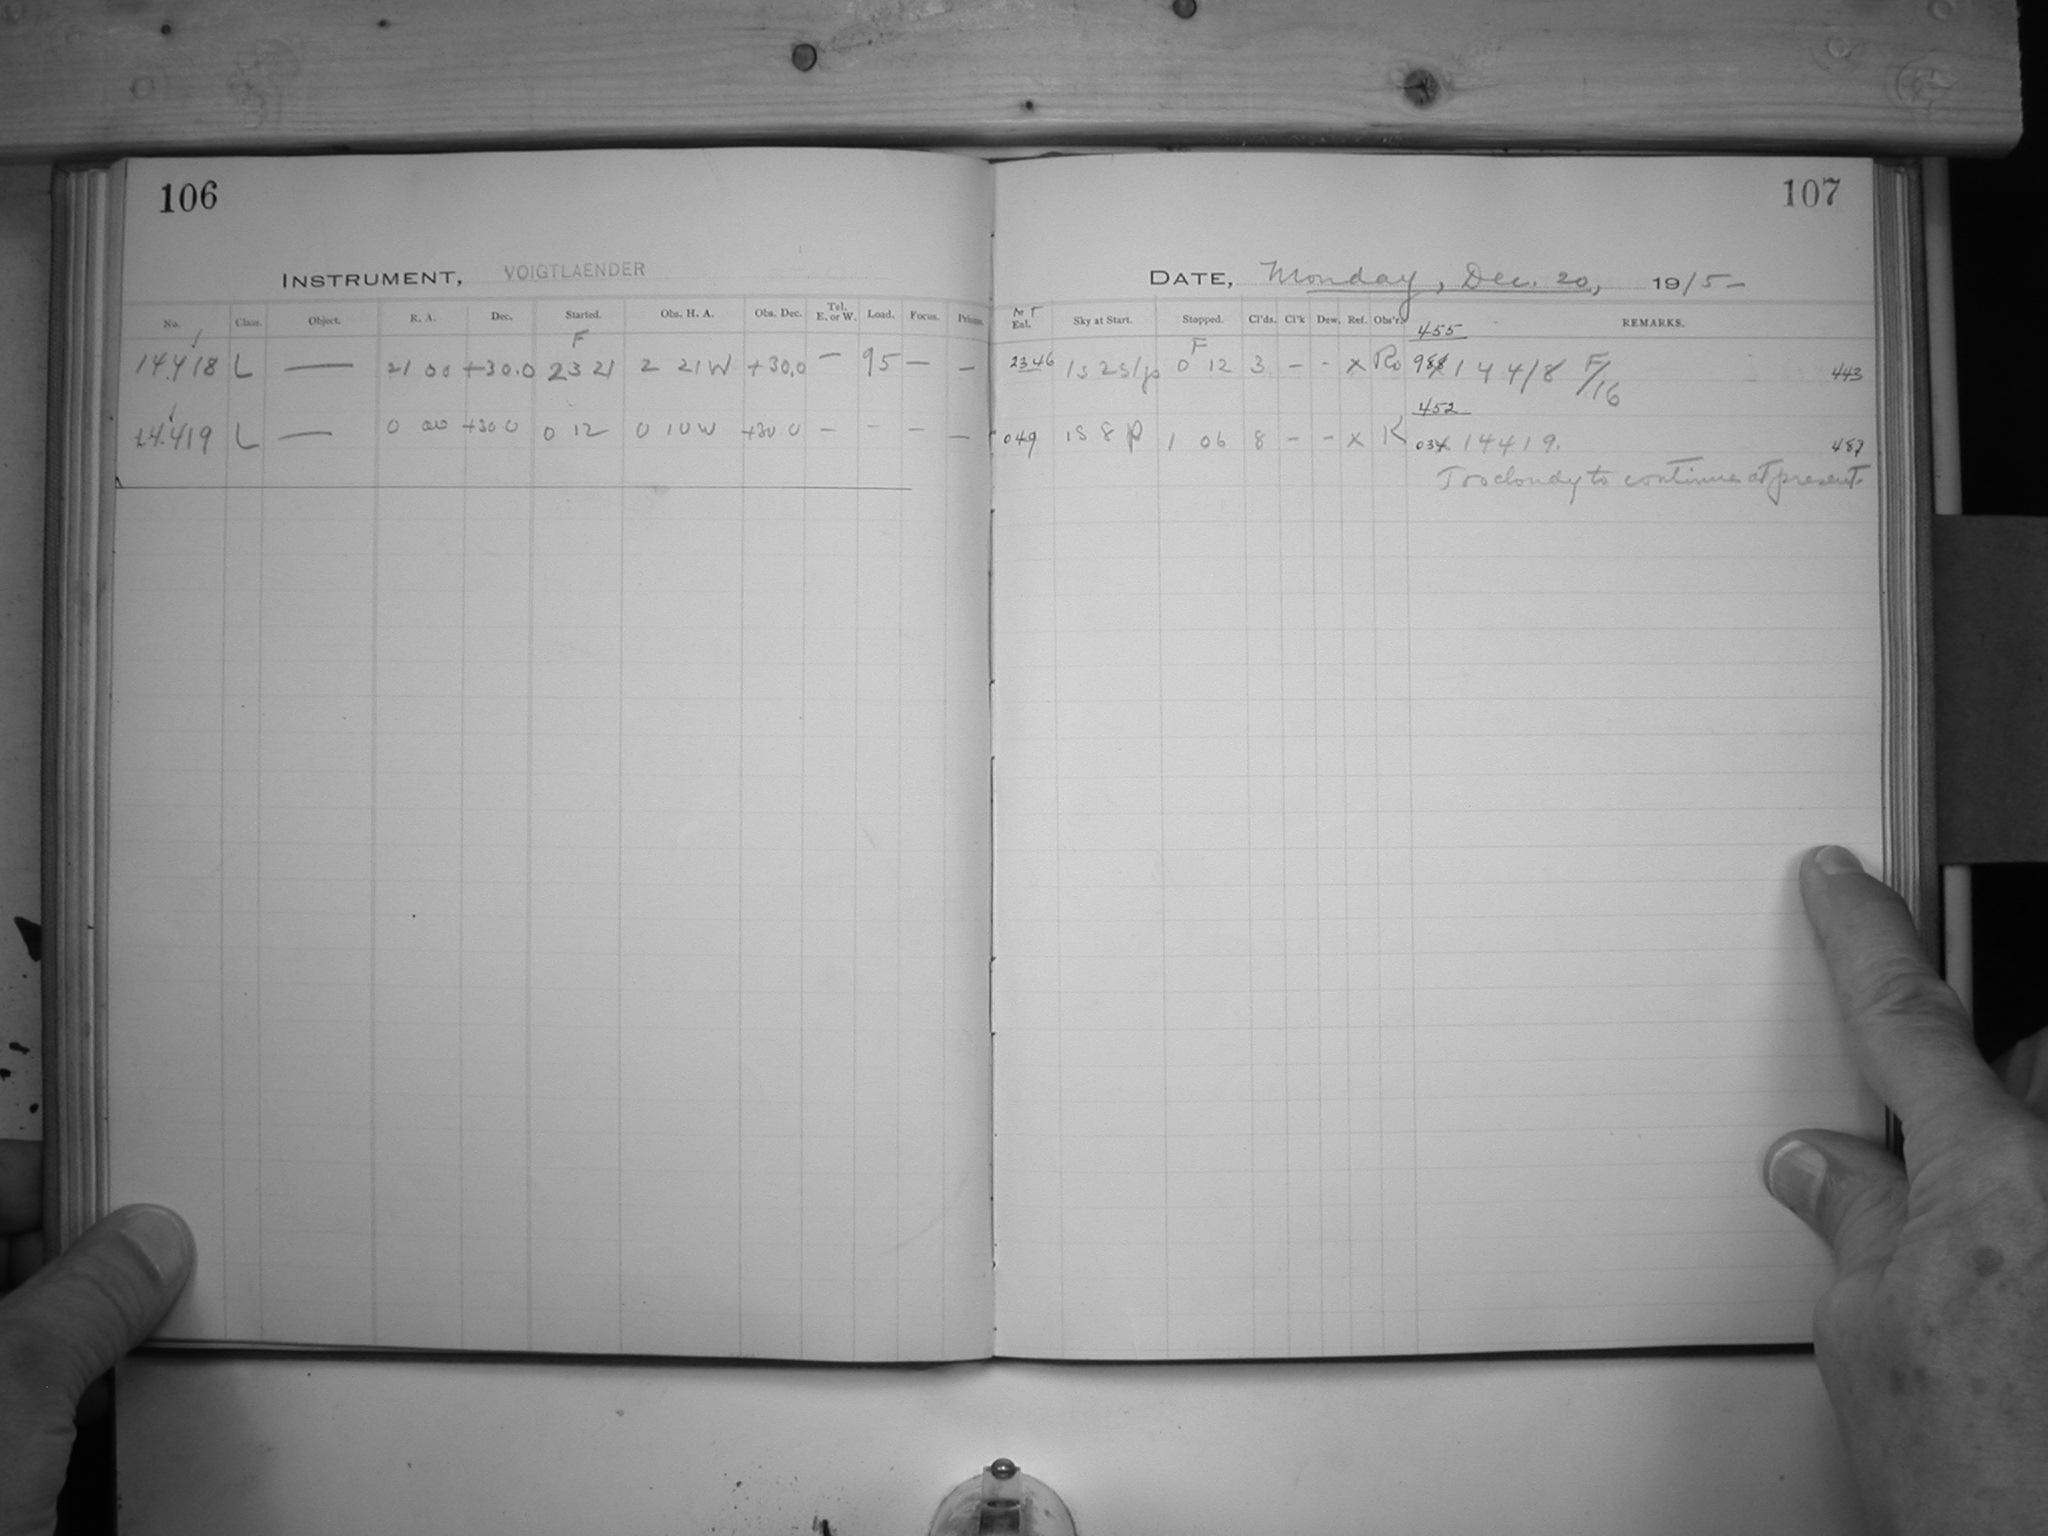 106
107
INSTRUMENT, VOIGTLAENDER
DATE, Monday, Dec. 20, 1915-
No. Class. Object. R. A. Dec. Started. Obs. H. A. Obs. Dec. Tel. E. or W. Load. Focus. Prisms. MT Exl. Sky at Start. Stopped. Cl'ds. Cl'k Dew. Ref. Obs'r. REMARKS.
F F 455
14418 L — 21 00 +30.0 23 21 2 21W +30.0 — 95 — — 2346 0 12 3 - - x Ro 14418 F/16 443
452
14419 L — 0 00 +30 0 0 12 0 10W +30.0 - - - — 049 1S 8 p 1 06 8 - - x K 14419. 487
Too cloudy to continue at present.